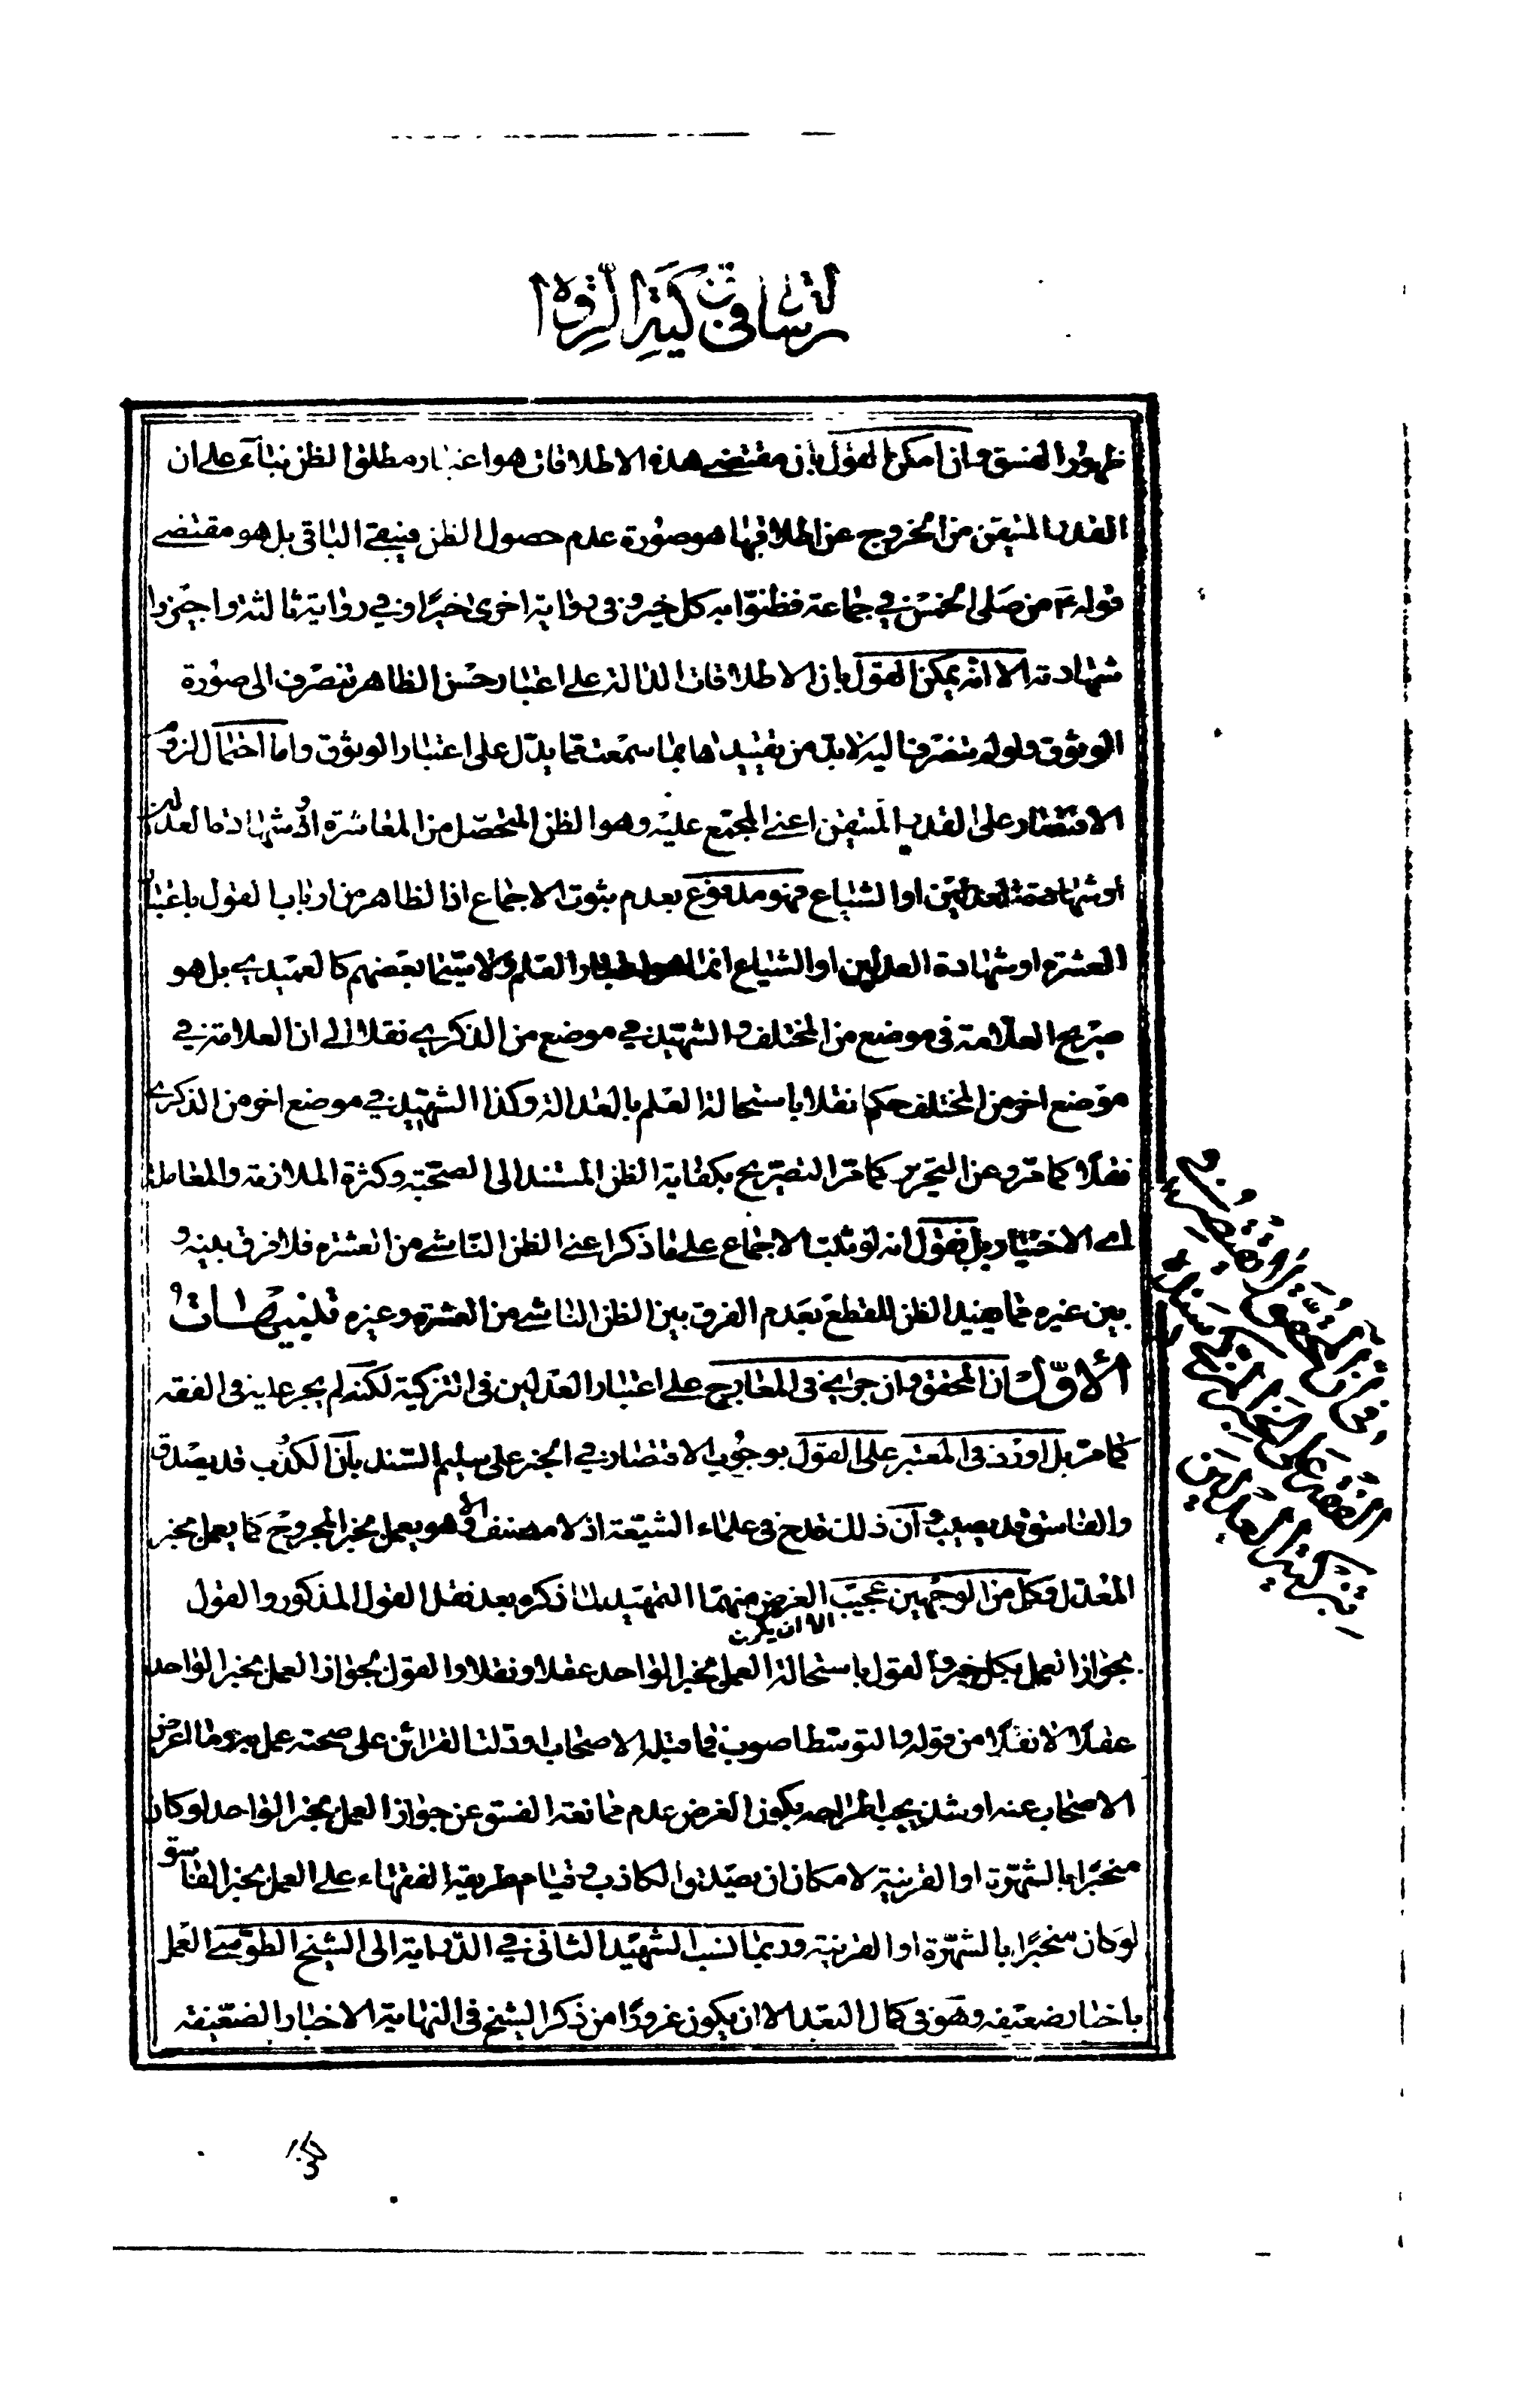 رسالة في تزكية الرواة
ظهور الفسق وان امكن القول بان مقتضى هذه الاطلاقات هو اعتبار مطلق الظن بناء على ان
القدر المتيقن من الخروج عن اطلاقها هو صورة عدم حصول الظن فيبقى الباقي بل هو مقتضى
قوله ع من صلى الخمس في جماعة فظنوا به كل خير وفي رواية اخرى خيرا وفي رواية ثالثة واجيزوا
شهادته الا انه يمكن القول بان الاطلاقات الدالة على اعتبار حسن الظاهر تنصرف الى صورة
الوثوق ولو لم تنصرف اليه لابد من تقييدها بما سمعت مما يدل على اعتبار الوثوق واما احتمال لزوم
الاقتصار على القدر المتيقن اعني المجمع عليه وهو الظن المتحصل من المعاشرة او شهادة العدلين
او شهادة العدلين او الشياع فهو مدفوع بعدم ثبوت الاجماع اذ الظاهر من ارباب القول باعتبار
العشرة او شهادة العدلين او الشياع انما هو اعتبار العلم ولا سيما بعضهم كالعميدي بل هو
صريح العلامة في موضع من المختلف والشهيد في موضع من الذكرى نقلا الى ان العلامة في
موضع اخر من المختلف حكم نقلا باستحالة العلم بالعدالة وكذا الشهيد في موضع اخر من الذكرى
نقلا كما مر وعن التحرير كما مر التصريح بكفاية الظن المستند الى الصحبة وكثرة الملازمة والمعاملة
اي الاختبار بل نقول انه لو ثبت الاجماع على ما ذكر اعني الظن الناشي من العشرة فلا فرق بينه و
بين غيره مما يفيد الظن للقطع بعدم الفرق بين الظن الناشي من العشرة وغيره تنبيهات
الاول ان المحقق وان جرى في المعارج على اعتبار العدلين في التزكية لكنه لم يجر عليه في الفقه
كما مر بل اورد في المعتبر على القول بوجوب الاقتصار في الخبر على سليم السند بان الكذب قد يصدق
والفاسق قد يصيب و ان ذلك قدح في علماء الشيعة اذ لا مصنف الا وهو يعمل بخبر المجروح كما يعمل بخبر
المعدل وكل من الوجهين عجيب الا ان يكون الغرض منهما التمهيد لما ذكره بعد نقل القول المذكور والقول
بجواز العمل بكل خبر والقول باستحالة العمل بخبر الواحد عقلا ونقلا والقول بجواز العمل بخبر الواحد
عقلا لا نقلا من قوله والتوسط اصوب فما قبله الاصحاب او دلت القرائن على صحته عمل به وما اعرض
الاصحاب عنه او شذ يجب اطراحه بكون الغرض عدم ممانعة الفسق عن جواز العمل بخبر الواحد لو كان
منجبرا بالشهرة او القرينة لامكان ان يصدق الكاذب وقيام طريقة الفقهاء على العمل بخبر الفاسق
لو كان منجبرا بالشهرة او القرينة وربما نسب الشهيد الثاني في الدراية الى الشيخ الطوسي العمل
باخبار ضعيفة وهو في كمال البعد الا ان يكون غرورا من ذكر الشيخ في النهاية الاخبار الضعيفة